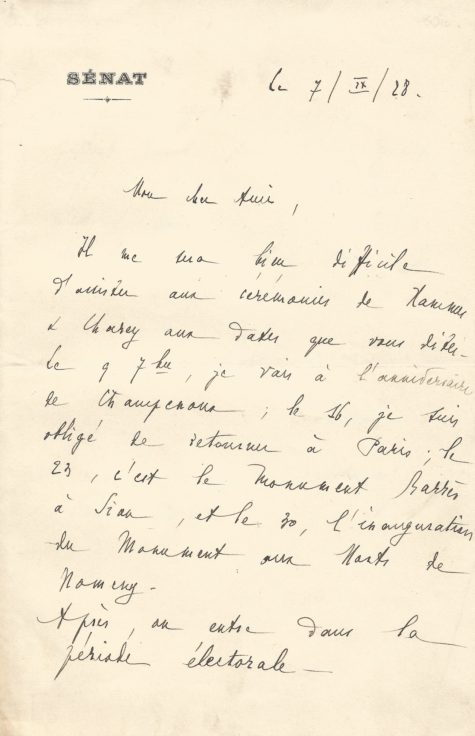 SÉNAT
le 7/IX/28.
Mon cher Ami,
Il me sera bien difficile
d'assister aux cérémonies de Xammes
& Charey aux dates que vous dites.
Le 9 7bre, je vais à l'anniversaire
de Champenoux ; le 16, je suis
obligé de retourner à Paris ; le
23, c'est le Monument Barrès
à Sion, et le 30, l'inauguration
du Monument aux Morts de
Nomeny.
Après, on entre dans la
période électorale —